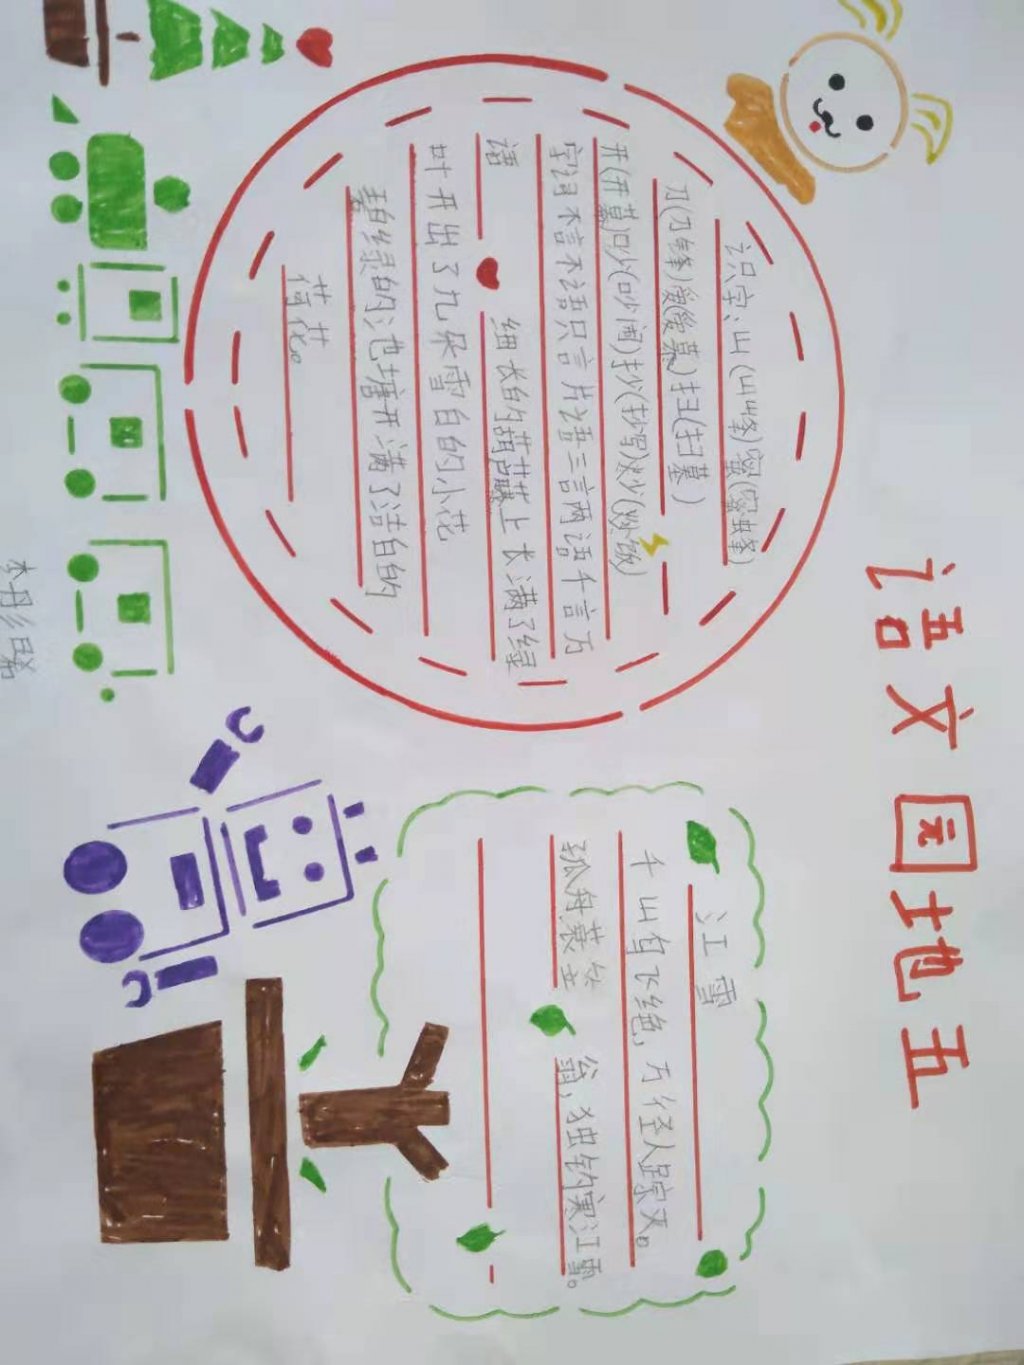 语文园地五
识字:山(山峰)蜜(蜜蜂)
刀(刀锋)爱(爱慕)扫(扫墓)
开(开幕)吵(吵闹)抄(抄写)炒(炒饭)
字词不言不语只言片语三言两语千言万
语 细长的葫芦藤上长满了绿
叶开出了几朵雪白的小花
碧绿的池塘开满了洁白的
荷花。
江雪
千山鸟飞绝,万径人踪灭。
孤舟蓑笠翁,独钓寒江雪。